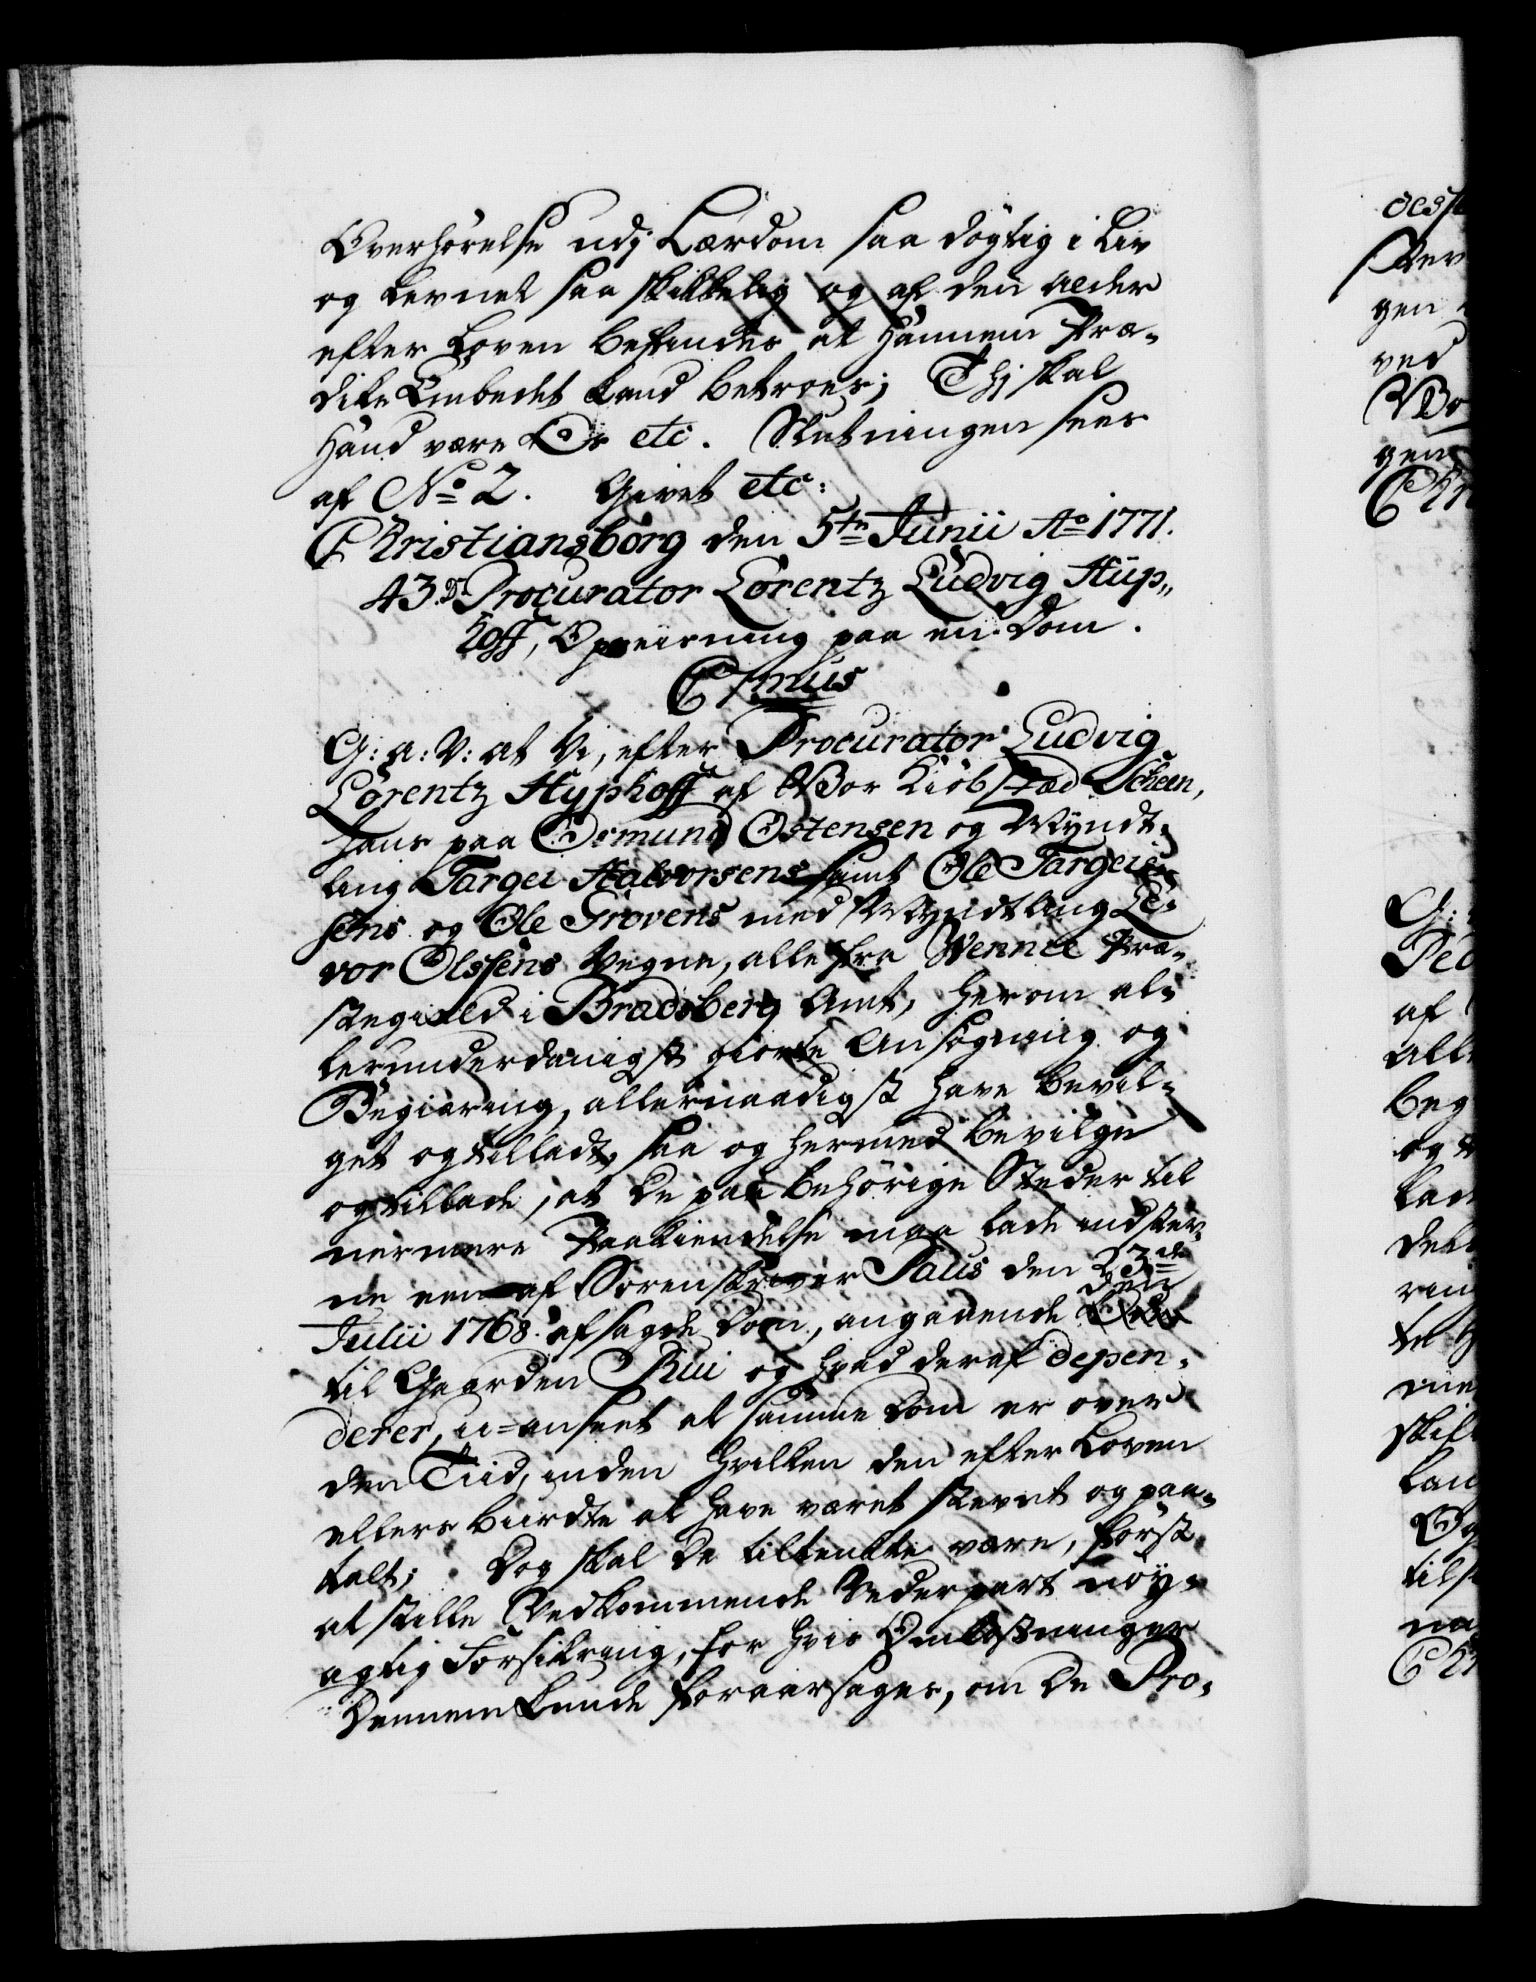 Overhørelse udj Lærdom saa døgtig i Liv
og Levnet saa skikkelig og af den Alder
efter Loven befindes at hannem Præ-
dike Embedet kand betroes; Thj skal
hand være Os etc. Slutningen sees
af No 2. Givet etc:
Christiansborg den 5te Junii Ao 1771.
43. Procurator Lorentz Ludvig Hüp„
hoff, Opreisning paa en Dom.
C 7mus
G: a: V: at Vi, efter Procurator Ludvig
Lorentz Hyphoff af Vor Kiöbstæd Scheen,
hans paa Osmund Ostensen og Myndt-
ling Targei Halvorsens samt Ole Targei-
sens og Ole Grovens med Myndtling Le-
vor Olssens Vegne, alle fra Wennee Præ-
stegield i Bradsberg Amt, herom al-
lerunderdanigst giorte Ansøgning og
Begiæring, allernaadigst have bevil-
get og tilladt, saa og hermed bevilge
og tillade, at de paa behørige Steder til
nermere Paakiendelse maa lade indstev-
ne een af Sorenskriver Paus den 23de
Julii 1768. afsagde Dom, angaaende den
til Gaarden Rui og hvad deraf depen-
derer, u-anseet at samme Dom er over
den Tiid, inden hvilken den efter Loven
ellers burdte at have været stevnt og paa-
talt; Dog skal de tiltenckte være, først
at stille Vedkommende Vederpart nøy-
agtig Forsikring, for hvis Omkostninger
Dennem kunde foraarsages, om de Pro-